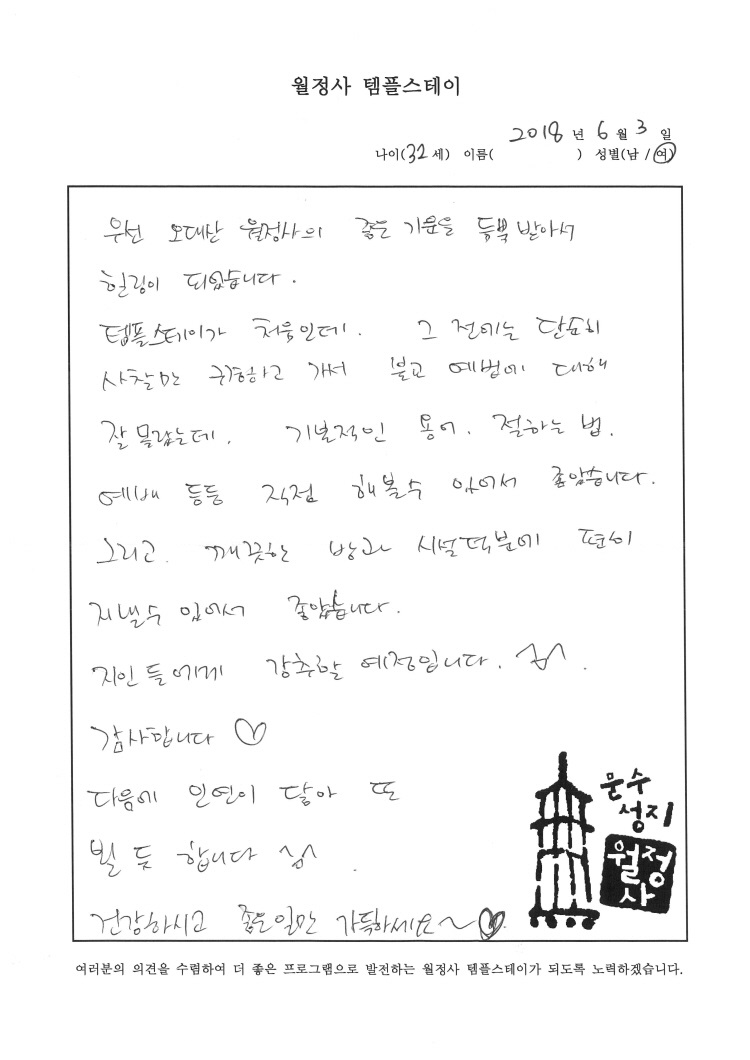 월정사 템플스테이
2018 년 6 월 3 일
나이(32 세) 이름( ) 성별(남 / 여)
우선 오대산 월정사의 좋은 기운을 듬뿍 받아서
힐링이 되었습니다.
템플스테이가 처음인데. 그 전에는 단순히
사찰만 구경하고 가서 불교 예법에 대해
잘 몰랐는데, 기본적인 용어, 절하는 법,
예배 등등 직접 해볼수 있어서 좋았습니다.
그리고. 깨끗한 방과 시설덕분에 편히
지낼수 있어서 좋았습니다.
지인들에게 강추할 예정입니다. ^^.
감사합니다 ♡
다음에 인연이 닿아 또
뵐 듯 합니다 ^^.
건강하시고 좋은일만 가득하세요~♡.
문수
성지
월정
사
여러분의 의견을 수렴하여 더 좋은 프로그램으로 발전하는 월정사 템플스테이가 되도록 노력하겠습니다.